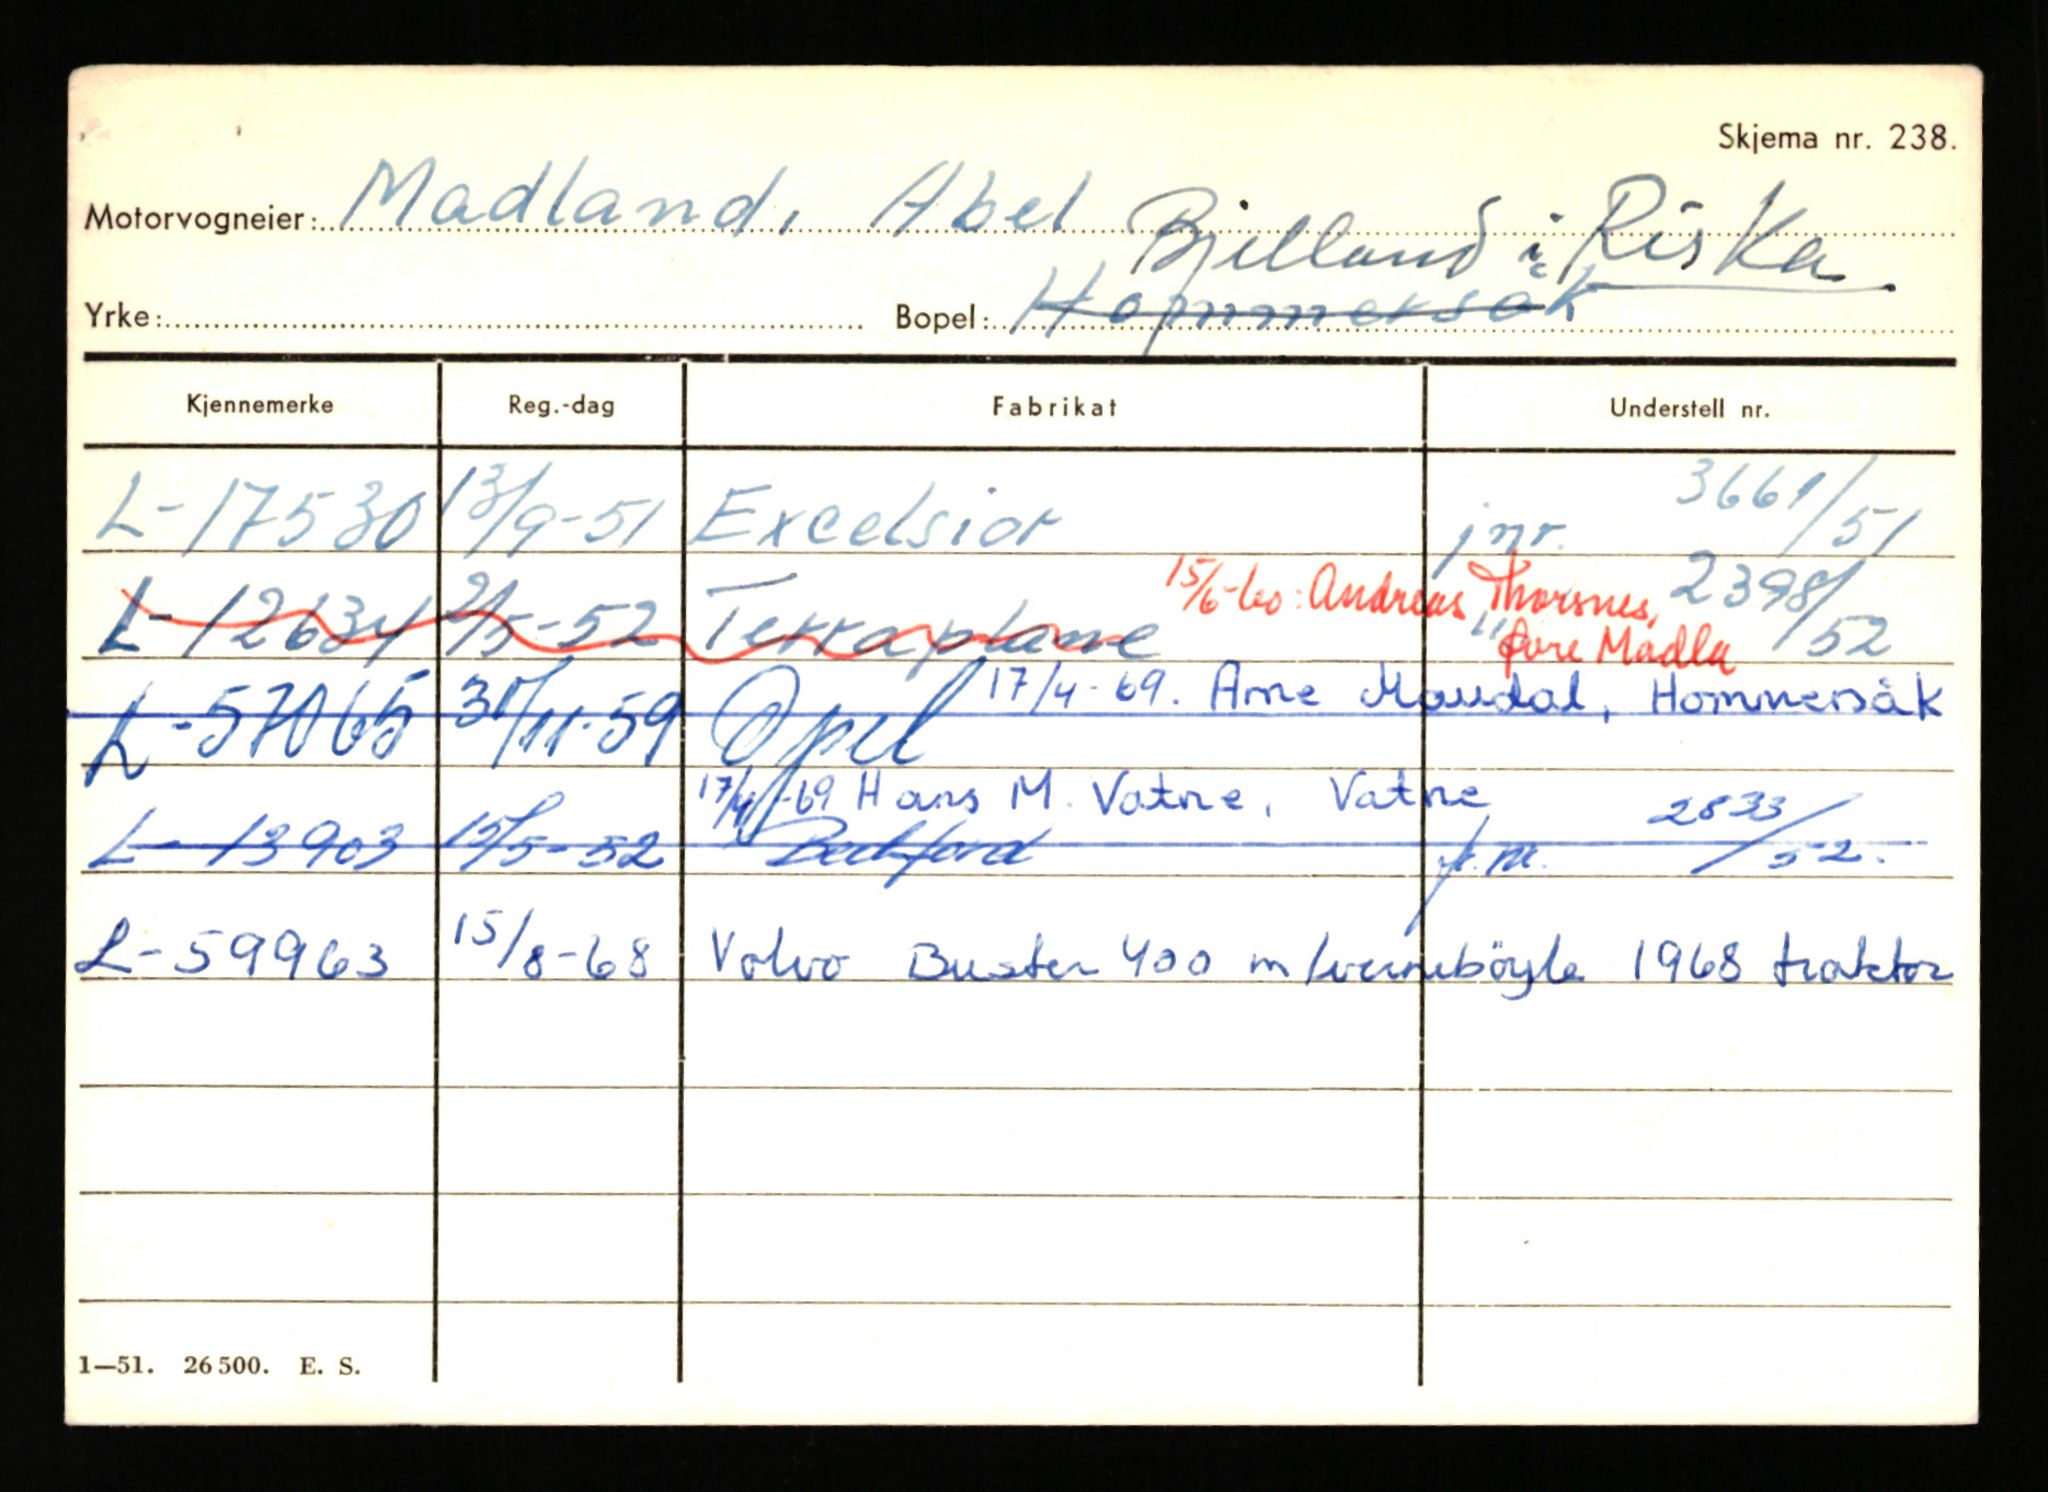 Skjema nr. 238.
Motorvogneier: Madland, Abel
Bjelland i Riska
Yrke: Bopel: Hommersåk
Kjennemerke Reg.-dag Fabrikat Understell nr.
L-17530 13/9-51 Excelsior jnr. 3661/51
L-12634 2/5-52 Terraplane " 2398/52
15/6-60: Andreas Thorsnes,
øvre Madla
L-57065 /11-59 Opel 17/4-69. Arne Maudal, Hommersåk
17/4-69 Hans M. Vatne, Vatne
L-13903 15/5-52 Bedford 2833/52.
L-59963 15/8-68 Volvo Buster 400 m/vernebøyle 1968 traktor
1—51. 26500. E. S.